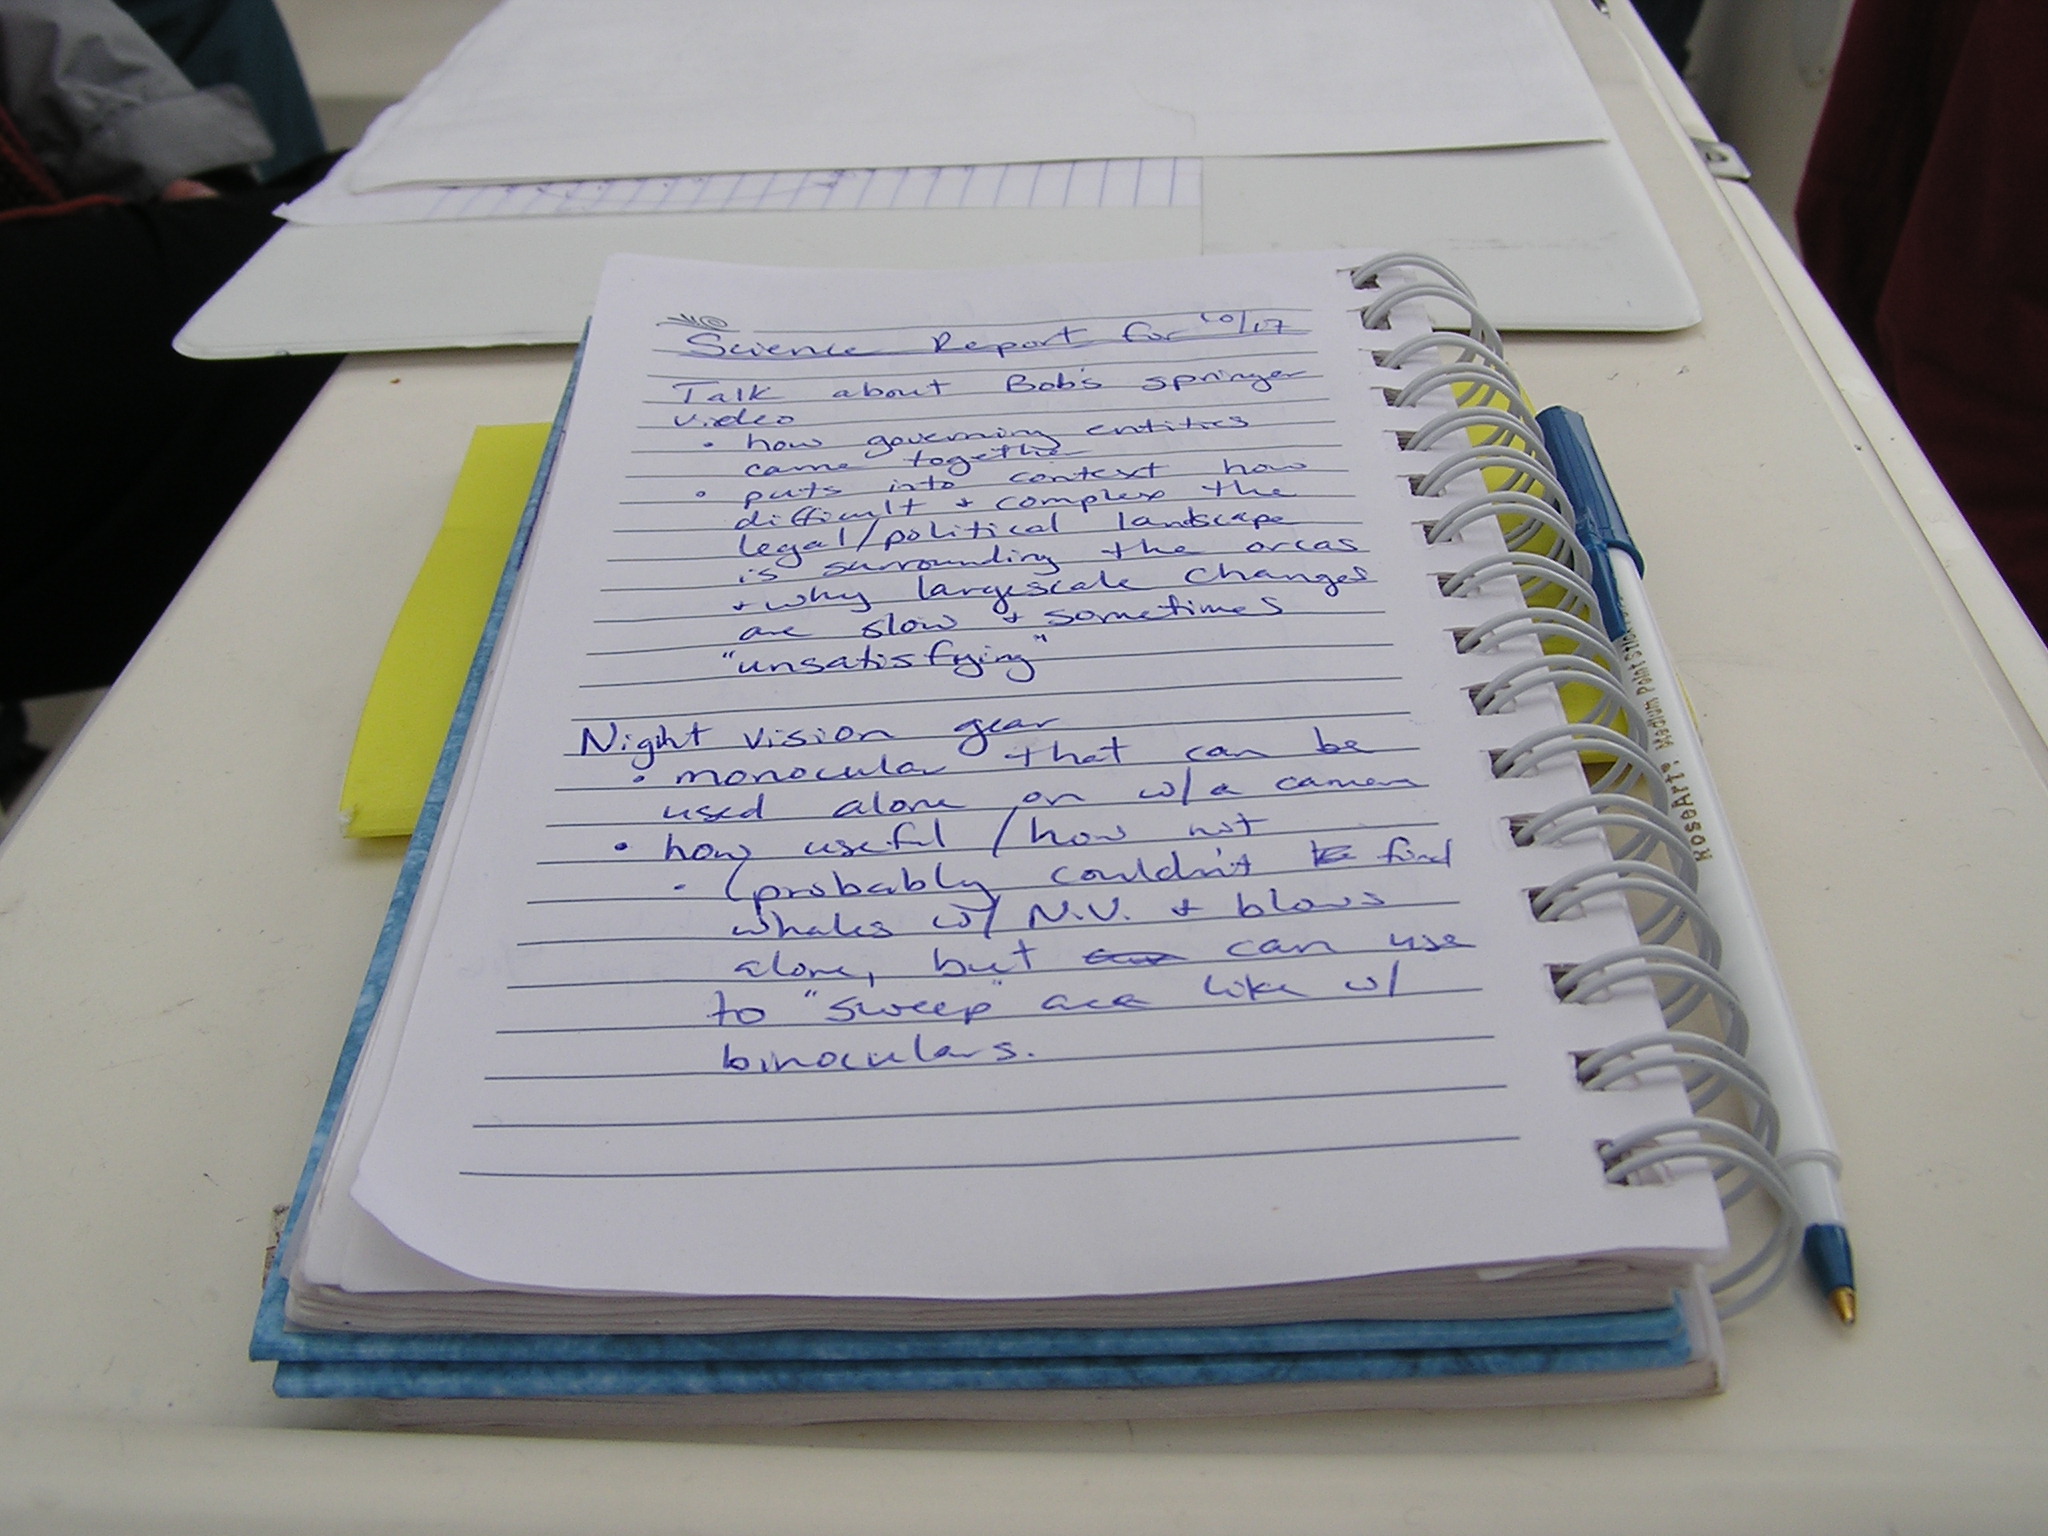 Science Report for 10/17
Talk about Bob's springer
video
• how governing entities
came together
• puts into context how
difficult + complex the
legal/political landscape
is surrounding the orcas
+ why largescale changes
are slow + sometimes
"unsatisfying"
Night vision gear
• monocular that can be
used alone or w/ a camera
• how useful / how not
• (probably couldn't find
whales w/ N.V. + blows
alone, but can use
to "sweep" area like w/
binoculars.
RoseArt® Medium Point Stick